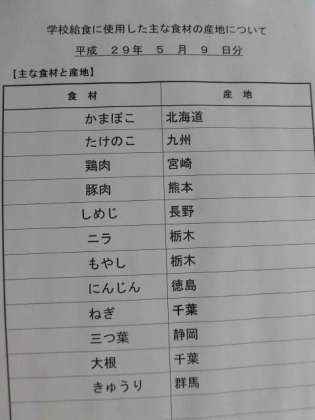 学校給食に使用した主な食材の産地について
平成 29年 5 月 9 日分
【主な食材と産地】
食 材 産 地
かまぼこ 北海道
たけのこ 九州
鶏肉 宮崎
豚肉 熊本
しめじ 長野
ニラ 栃木
もやし 栃木
にんじん 徳島
ねぎ 千葉
三つ葉 静岡
大根 千葉
きゅうり 群馬